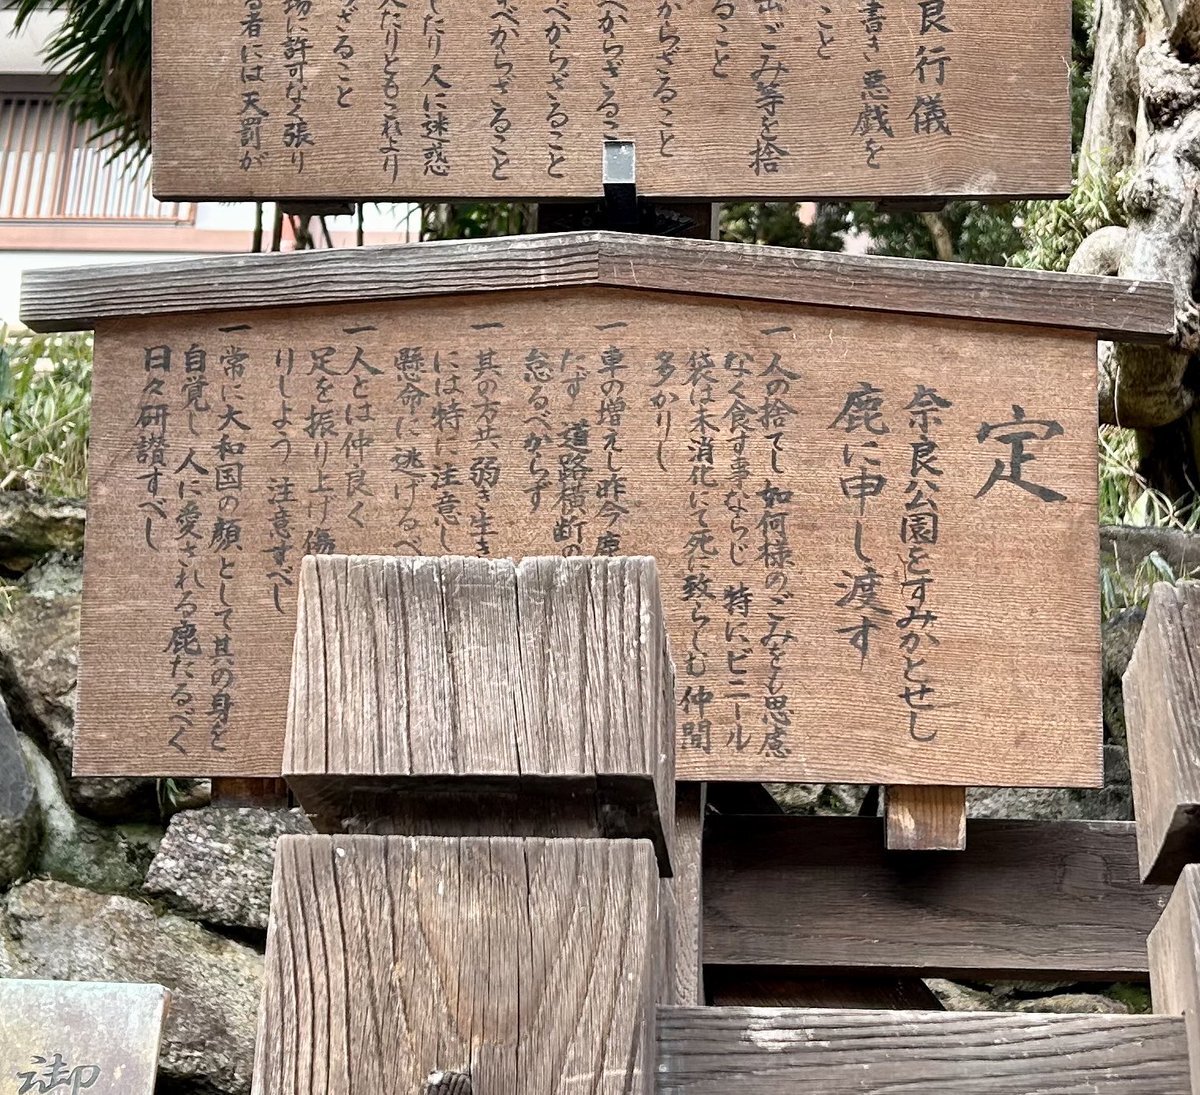 良行儀
書き 悪戯を
こと
ごみ等を捨
ること
からざること
べからざるこ
べからざること
すべからざること
したり人に迷惑
人たりともこれより
ざること
場に許可なく張り
る者には天罰が
定
奈良公園をすみかとせし
鹿に申し渡す
一 人の捨てし 如何様のごみをも思慮
なく食す事ならじ 特にビニール
袋は未消化にて死に致らしむ 仲間
多かりし
一 車の増えし昨今
たず 道路横断の
怠るべからず
一 其の方共 弱き生き
には特に注意し
懸命に逃げるべ
一 人とは仲良く
足を振り上げ 傷
りしよう 注意すべし
一 常に大和国の顔として其の身を
自覚し 人に愛される鹿たるべく
日々研讃すべし
御